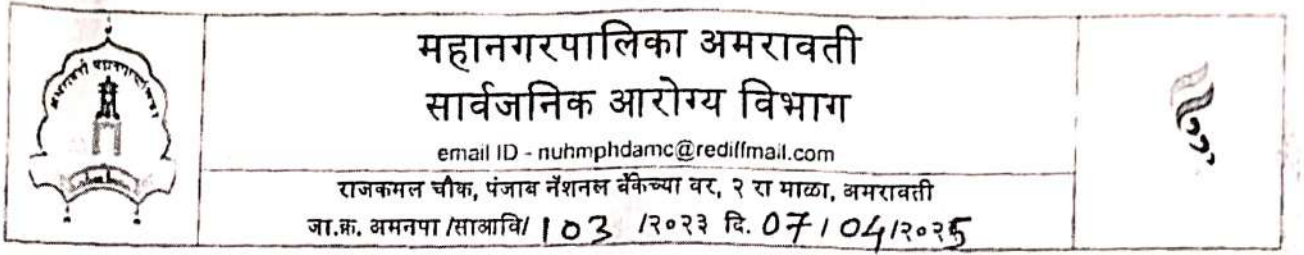 अमरावती महानगरपालिका
महानगरपालिका अमरावती
सार्वजनिक आरोग्य विभाग
email ID - nuhmphdamc@rediffmail.com
राजकमल चौक, पंजाब नॅशनल बँकेच्या वर, २ रा माळा, अमरावती
जा.क्र. अमनपा /साआवि/ 103 /२०२३ दि. 07 / 04/२०२5